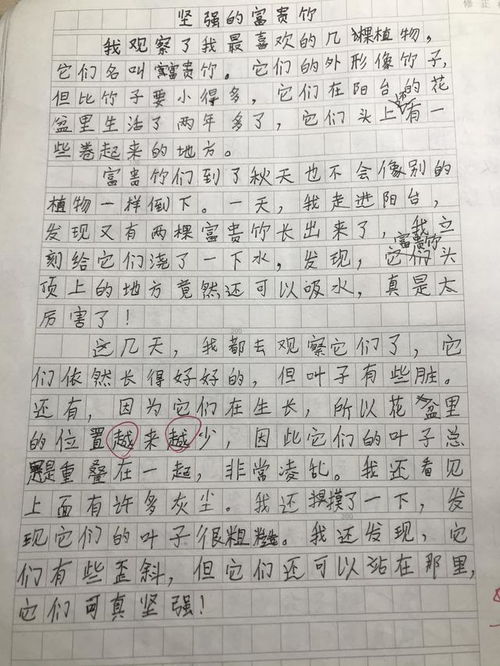 坚强的富贵竹
我观察了我最喜欢的几棵植物,
它们名叫富贵竹。它们的外形像竹子,
但比竹子要小得多,它们在阳台的花
盆里生活了两年多了,它们头上有一
些卷起来的地方。
富贵竹们到了秋天也不会像别的
植物一样倒下。一天,我走进阳台,
发现又有两棵富贵竹长出来了,我立
刻给它们浇了一下水,发现,富贵竹它们头
顶上的地方竟然还可以吸水,真是太
厉害了!
这几天,我都去观察它们了,它
们依然长得好好的,但叶子有些脏。
还有,因为它们在生长,所以花盆里
的位置越来越少,因此它们的叶子总
是重叠在一起,非常凌乱。我还看见
上面有许多灰尘。我还摸了一下,发
现它们的叶子很粗糙。我还发现,它
们有些歪斜,但它们还可以站在那里,
它们可真坚强!